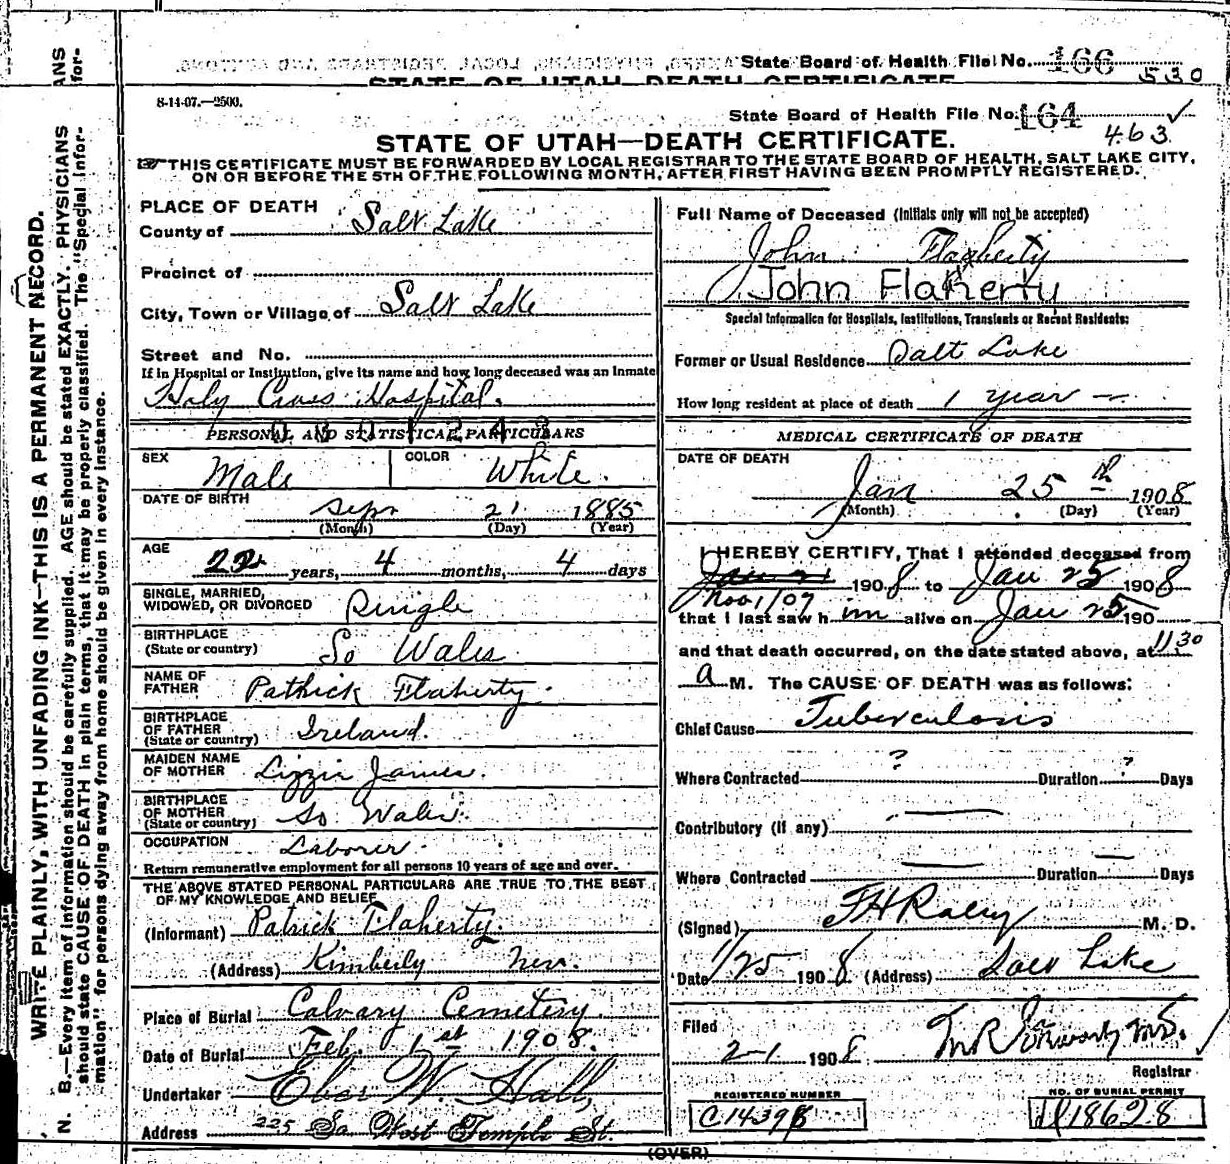 State Board of Health File No. 166
530
STATE OF UTAH DEATH CERTIFICATE
8-14-07.—2500.
State Board of Health File No. 164 ✓
463
STATE OF UTAH—DEATH CERTIFICATE.
THIS CERTIFICATE MUST BE FORWARDED BY LOCAL REGISTRAR TO THE STATE BOARD OF HEALTH, SALT LAKE CITY,
ON OR BEFORE THE 5TH OF THE FOLLOWING MONTH, AFTER FIRST HAVING BEEN PROMPTLY REGISTERED.
WRITE PLAINLY, WITH UNFADING INK—THIS IS A PERMANENT RECORD.
N. B.—Every item of information should be carefully supplied. AGE should be stated EXACTLY. PHYSICIANS
should state CAUSE OF DEATH in plain terms, that it may be properly classified. The "Special Infor-
mation" for persons dying away from home should be given in every instance.
PLACE OF DEATH
County of Salt Lake
Precinct of
City, Town or Village of Salt Lake
Street and No.
If in Hospital or Institution, give its name and how long deceased was an Inmate
Holy Cross Hospital.
PERSONAL AND STATISTICAL PARTICULARS
SEX Male COLOR White.
DATE OF BIRTH Sept 21 1885
(Month) (Day) (Year)
AGE 22 years, 4 months, 4 days
SINGLE, MARRIED,
WIDOWED, OR DIVORCED Single
BIRTHPLACE
(State or country) So Wales
NAME OF
FATHER Pathick Flaherty.
BIRTHPLACE
OF FATHER
(State or country) Ireland.
MAIDEN NAME
OF MOTHER Lizzie James.
BIRTHPLACE
OF MOTHER
(State or country) So Wales.
OCCUPATION Laborer.
Return remunerative employment for all persons 10 years of age and over.
THE ABOVE STATED PERSONAL PARTICULARS ARE TRUE TO THE BEST
OF MY KNOWLEDGE AND BELIEF
(Informant) Patrick Flaherty.
(Address) Kimberly Nev.
Place of Burial Calvary Cemetery
Date of Burial Feb 1st 1908.
Undertaker Eber W. Hall,
Address 225 So West Temple St.
Full Name of Deceased (Initials only will not be accepted)
John Flaherty
John Flaherty
Special Information for Hospitals, Institutions, Transients or Recent Residents:
Former or Usual Residence Salt Lake
How long resident at place of death 1 year
MEDICAL CERTIFICATE OF DEATH
DATE OF DEATH
Jan 25th 1908
(Month) (Day) (Year)
I HEREBY CERTIFY, That I attended deceased from
Jan 21 1908 to Jan 25 1908
Nov 1/07
that I last saw him alive on Jan 25 190
and that death occurred, on the date stated above, at 11 30
a M. The CAUSE OF DEATH was as follows:
Chief Cause Tuberculosis
Where Contracted ? Duration ? Days
Contributory (if any) —
Where Contracted — Duration — Days
(Signed) M. D.
Date 1/25 1908 (Address) Salt Lake
Filed
2-1 1908
Registrar
REGISTERED NUMBER
NO. OF BURIAL PERMIT
(OVER)